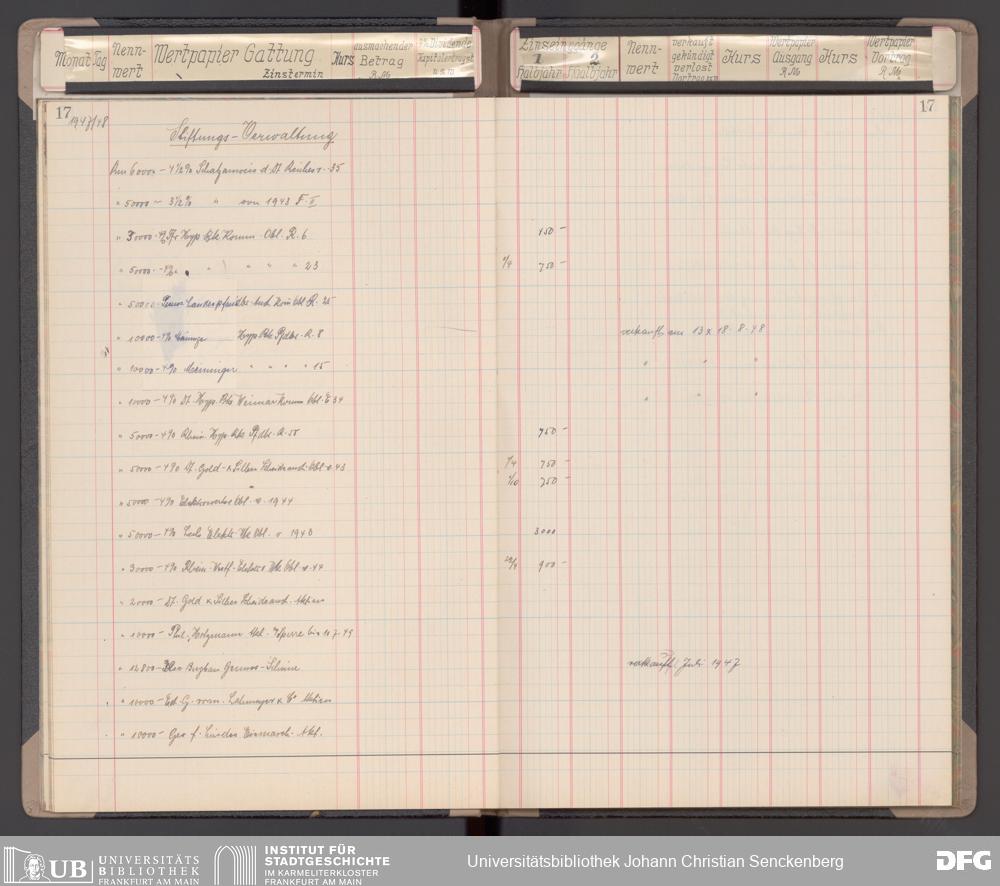 Monat Tag Nenn-wert Wertpapier Gattung Zinstermin Kurs ausmachender Betrag R.M. Dividende Kapitalertragst. u.s.w.
Zinseingänge 1 Halbjahr 2 Halbjahr Nenn-wert verkauft gekündigt verlost Vortrag Kurs Wertpapier Ausgang R.M. Kurs Wertpapier Vortrag R.M.
17 1947/48 17
Stiftungs-Verwaltung
Rm 60000 – 4 1/2 % d. Dt. Reiches v. 35
" 50000 – 3 1/2 % " von 1943 F. II
" 30000 Hyp Bk Komm. Obl. R. 6 450 –
" 50000 " " " " 23 1/4 750 –
" 50000 Landespfandbr. Anst. Kom Obl R. 25
" 10000 – 4% Hyp Bk Pfdbr. R. 8 verkauft am 13 & 18. 8. 48
" 10000 – 4% Meininger " " " " 15 " " "
" 10000 – 4% Dt. Hyp. Bk Weimar Komm Obl. E 34 " " "
" 50000 – 4% Rhein. Hyp. Bk Pfdbr. R. 750 –
" 50000 – 4% Dt. Gold- & Silber Scheideanst. Obl. v. 43 1/4 750 –
1/10 750 –
" 50000 – 4% Obl. v. 1944
" 50000 – 4% Elektr. Wk Obl. v 1943 3000
" 30000 – 4% Rhein. Westf. Elektr. Wk Obl v. 44 900 –
" 20000 – Dt. Gold & Silber Scheideanst. Aktien
" 10000 – Phil. Holzmann Akt. Sperre bis 7. 49
" 12800 – Bergbau verkauft Juli 1947
" 10000 – vorm. Lahmeyer & Co Aktien
" 10000 – Ges. f. Lindes Eismasch. Akt.
UB UNIVERSITÄTS
BIBLIOTHEK
FRANKFURT AM MAIN
INSTITUT FÜR
STADTGESCHICHTE
IM KARMELITERKLOSTER
FRANKFURT AM MAIN
Universitätsbibliothek Johann Christian Senckenberg
DFG